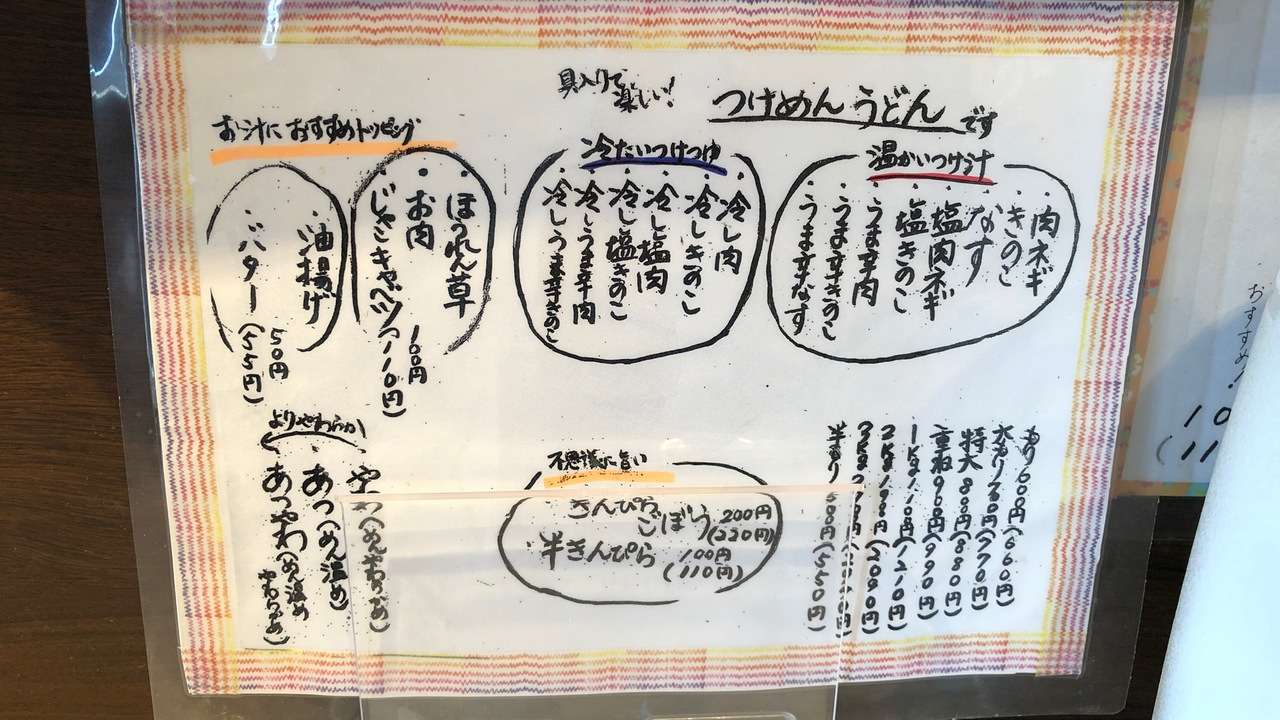 具入りで
楽しい!
つけめんうどん です
温かいつけ汁
・肉ネギ
・きのこ
・なす
・塩肉ネギ
・塩きのこ
・うま辛肉
・うま辛きのこ
・うま辛なす
冷たいつけつゆ
・冷し肉
・冷しきのこ
・冷し塩肉
・冷し塩きのこ
・冷しうま辛肉
・冷しうま辛きのこ
お汁におすすめトッピング
・ほうれん草
・お肉
・じゃこキャベツ
100円
(110円)
・油揚げ
・バター
50円
(55円)
もり600円(660円)
水もり700円(770円)
特大800円(880円)
重ね900円(990円)
1kg1100円(1210円)
2kg1900円(2090円)
半もり500円(550円)
不思議に旨い
きんぴら
ごぼう 200円
(220円)
半きんぴら 100円
(110円)
よりやわらか
・やわ(めんやわらかめ)
・あつ(めん温め)
・あつやわ(めん温め
やわらかめ)
おすすめ